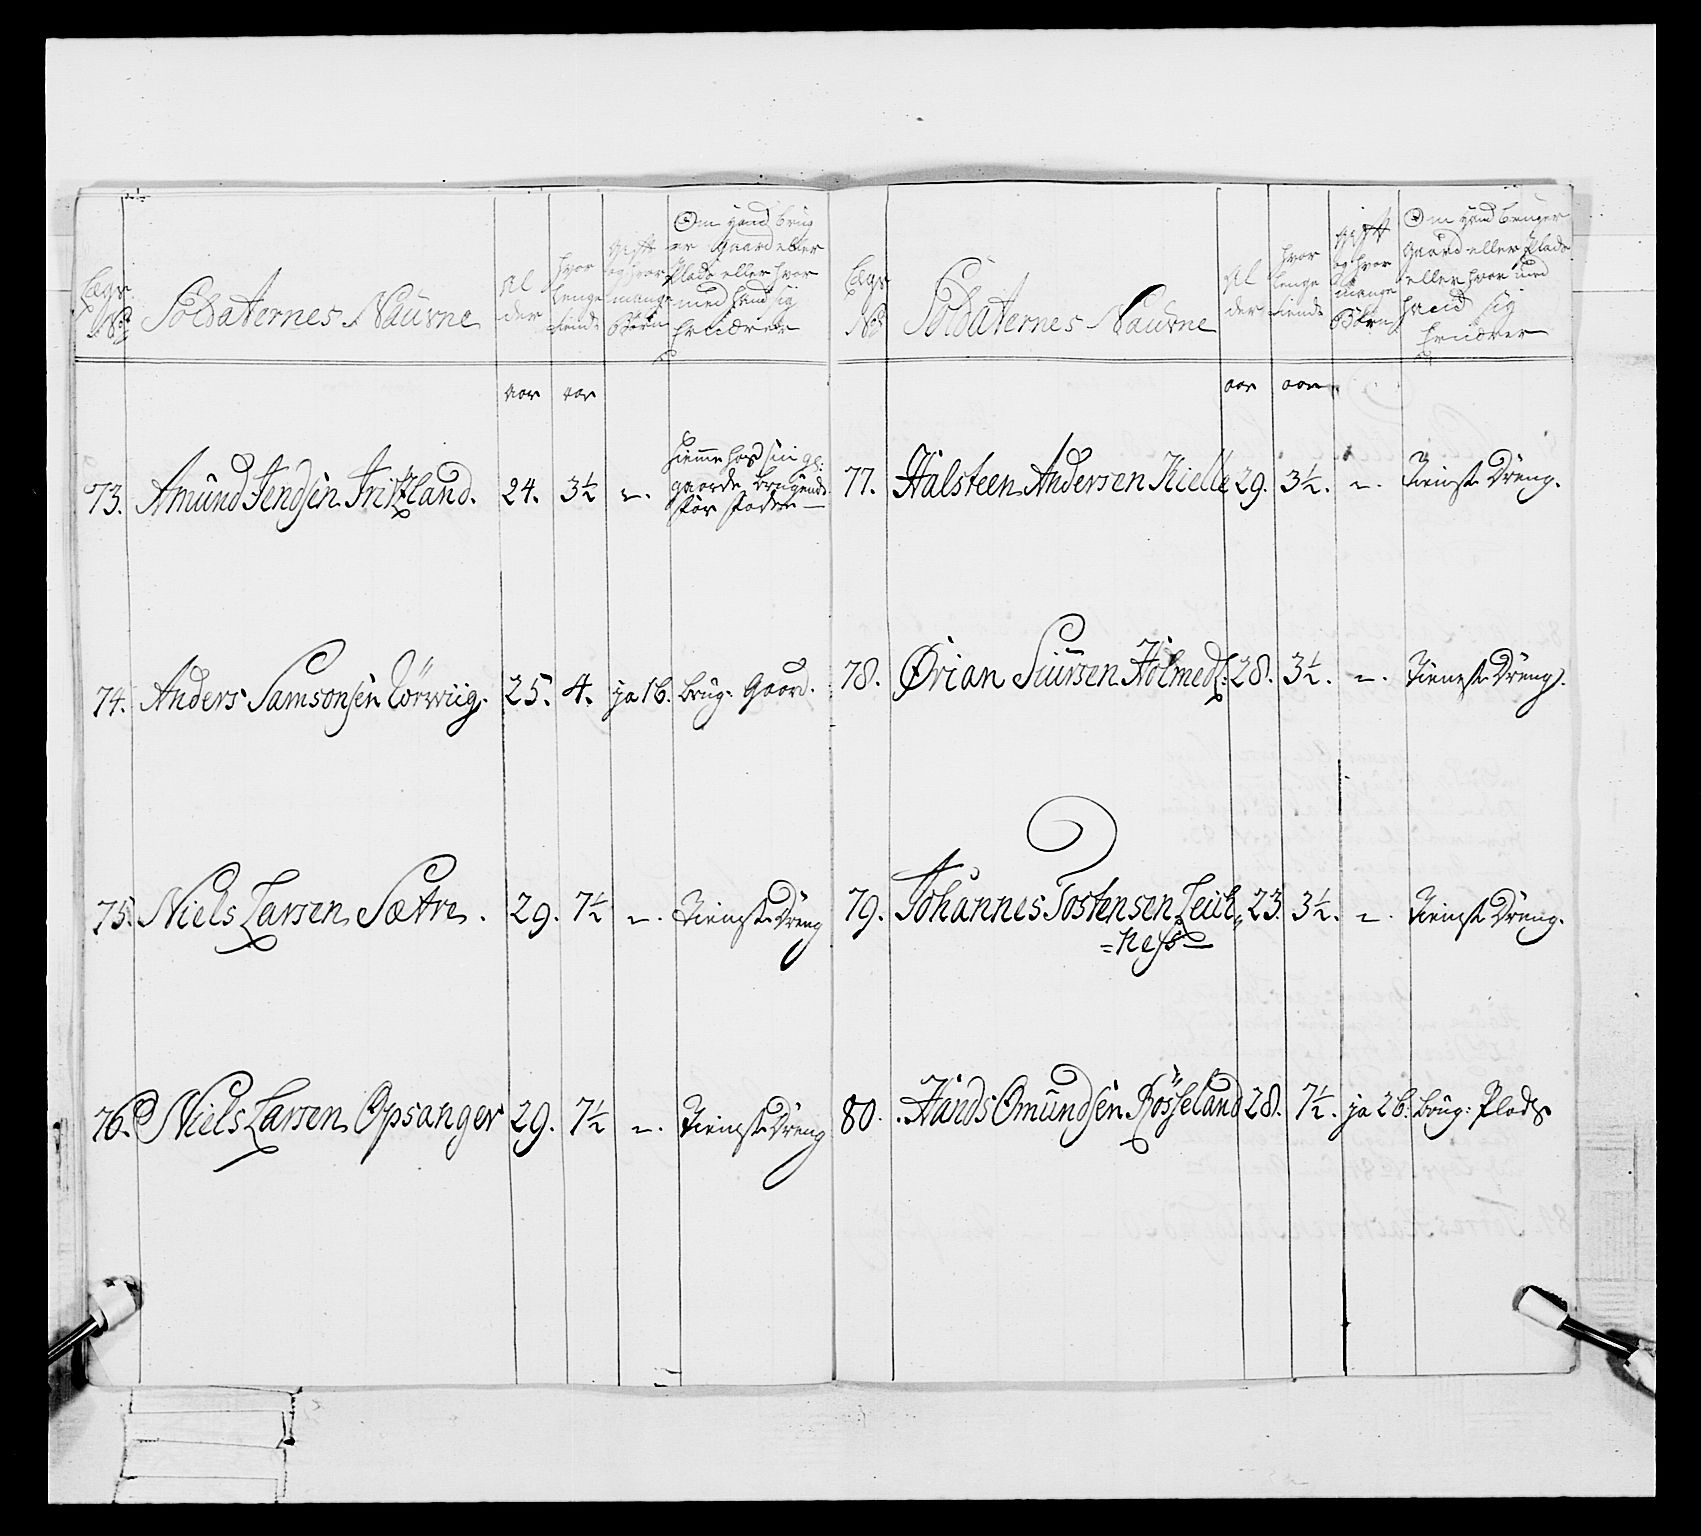 Lægs No
Soldaternes Naufne
Al der
hvor lenge tient
gift og hvor mange Börn
Om hand brug er gaard eller Plads eller hvor med hand sig Ernærer
aar aar
73. Amund Jendsen Fritzland. 24. 3½ n. hiemme hos sin
gaards brugende
74. Anders Samsonsen Törwiig. 25. 4. ja 1 b. brug: Gaard.
75. Niels Larsen Sætre. 29. 7½ n. Tienest Dreng
76. Niels Larsen Opsanger 29. 7½ n. Tienest Dreng
Lægs No
Soldaternes Naufne
Al der
hvor lenge tient
gift og hvor mange Börn
Om hand bruger gaard eller Plads eller hvor med hand sig Ernærer
aar aar
77. Halsteen Andersen Kielle 29. 3½. n. Tienest Dreng.
78. Ørian Siursen Holmed: 28. 3½. n. Tienest Dreng.
79. Johannes Tostensen 23. 3½. n. Tienest Dreng.
=ness
80. Hands Omundsen Rösseland 28. 7½. ja 2 b: brug: Plads